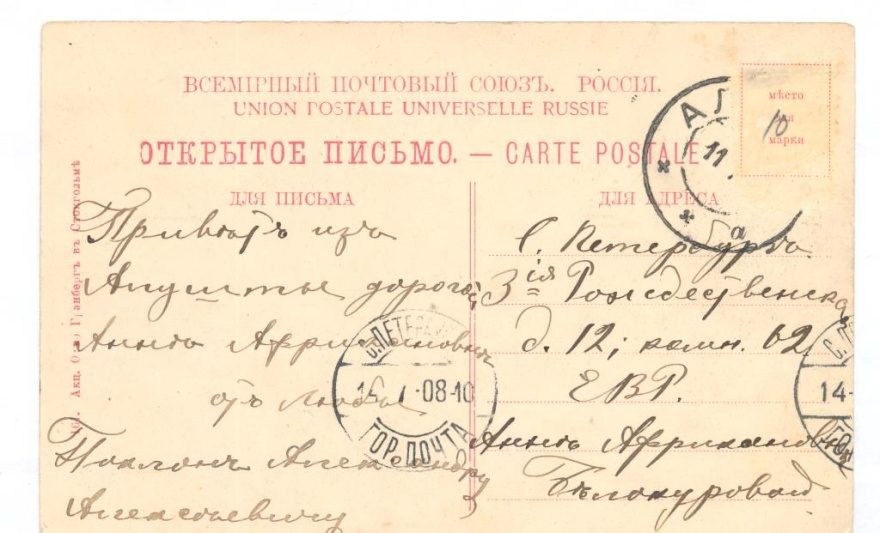 ВСЕМІРНЫЙ ПОЧТОВЫЙ СОЮЗЪ. РОССІЯ.
UNION POSTALE UNIVERSELLE RUSSIE
ОТКРЫТОЕ ПИСЬМО. — CARTE POSTALE
мѣсто
для
марки
10
АЛ
11.
а
ДЛЯ ПИСЬМА
Привѣтъ изъ
Алушты дорогой
Аннѣ Африкановнѣ
отъ Любы
Поклонъ Александру
Алексѣевичу
ДЛЯ АДРЕСА
С. Петербургъ.
3ія Рождественская
д. 12; комн. 62
ЕВР.
Аннѣ Африкановнѣ
Бѣлокуровой
С.ПЕТЕРБ
08-10
ГОР.ПОЧТА
14-
Акц. О-во Гранбергъ въ Стокгольмѣ